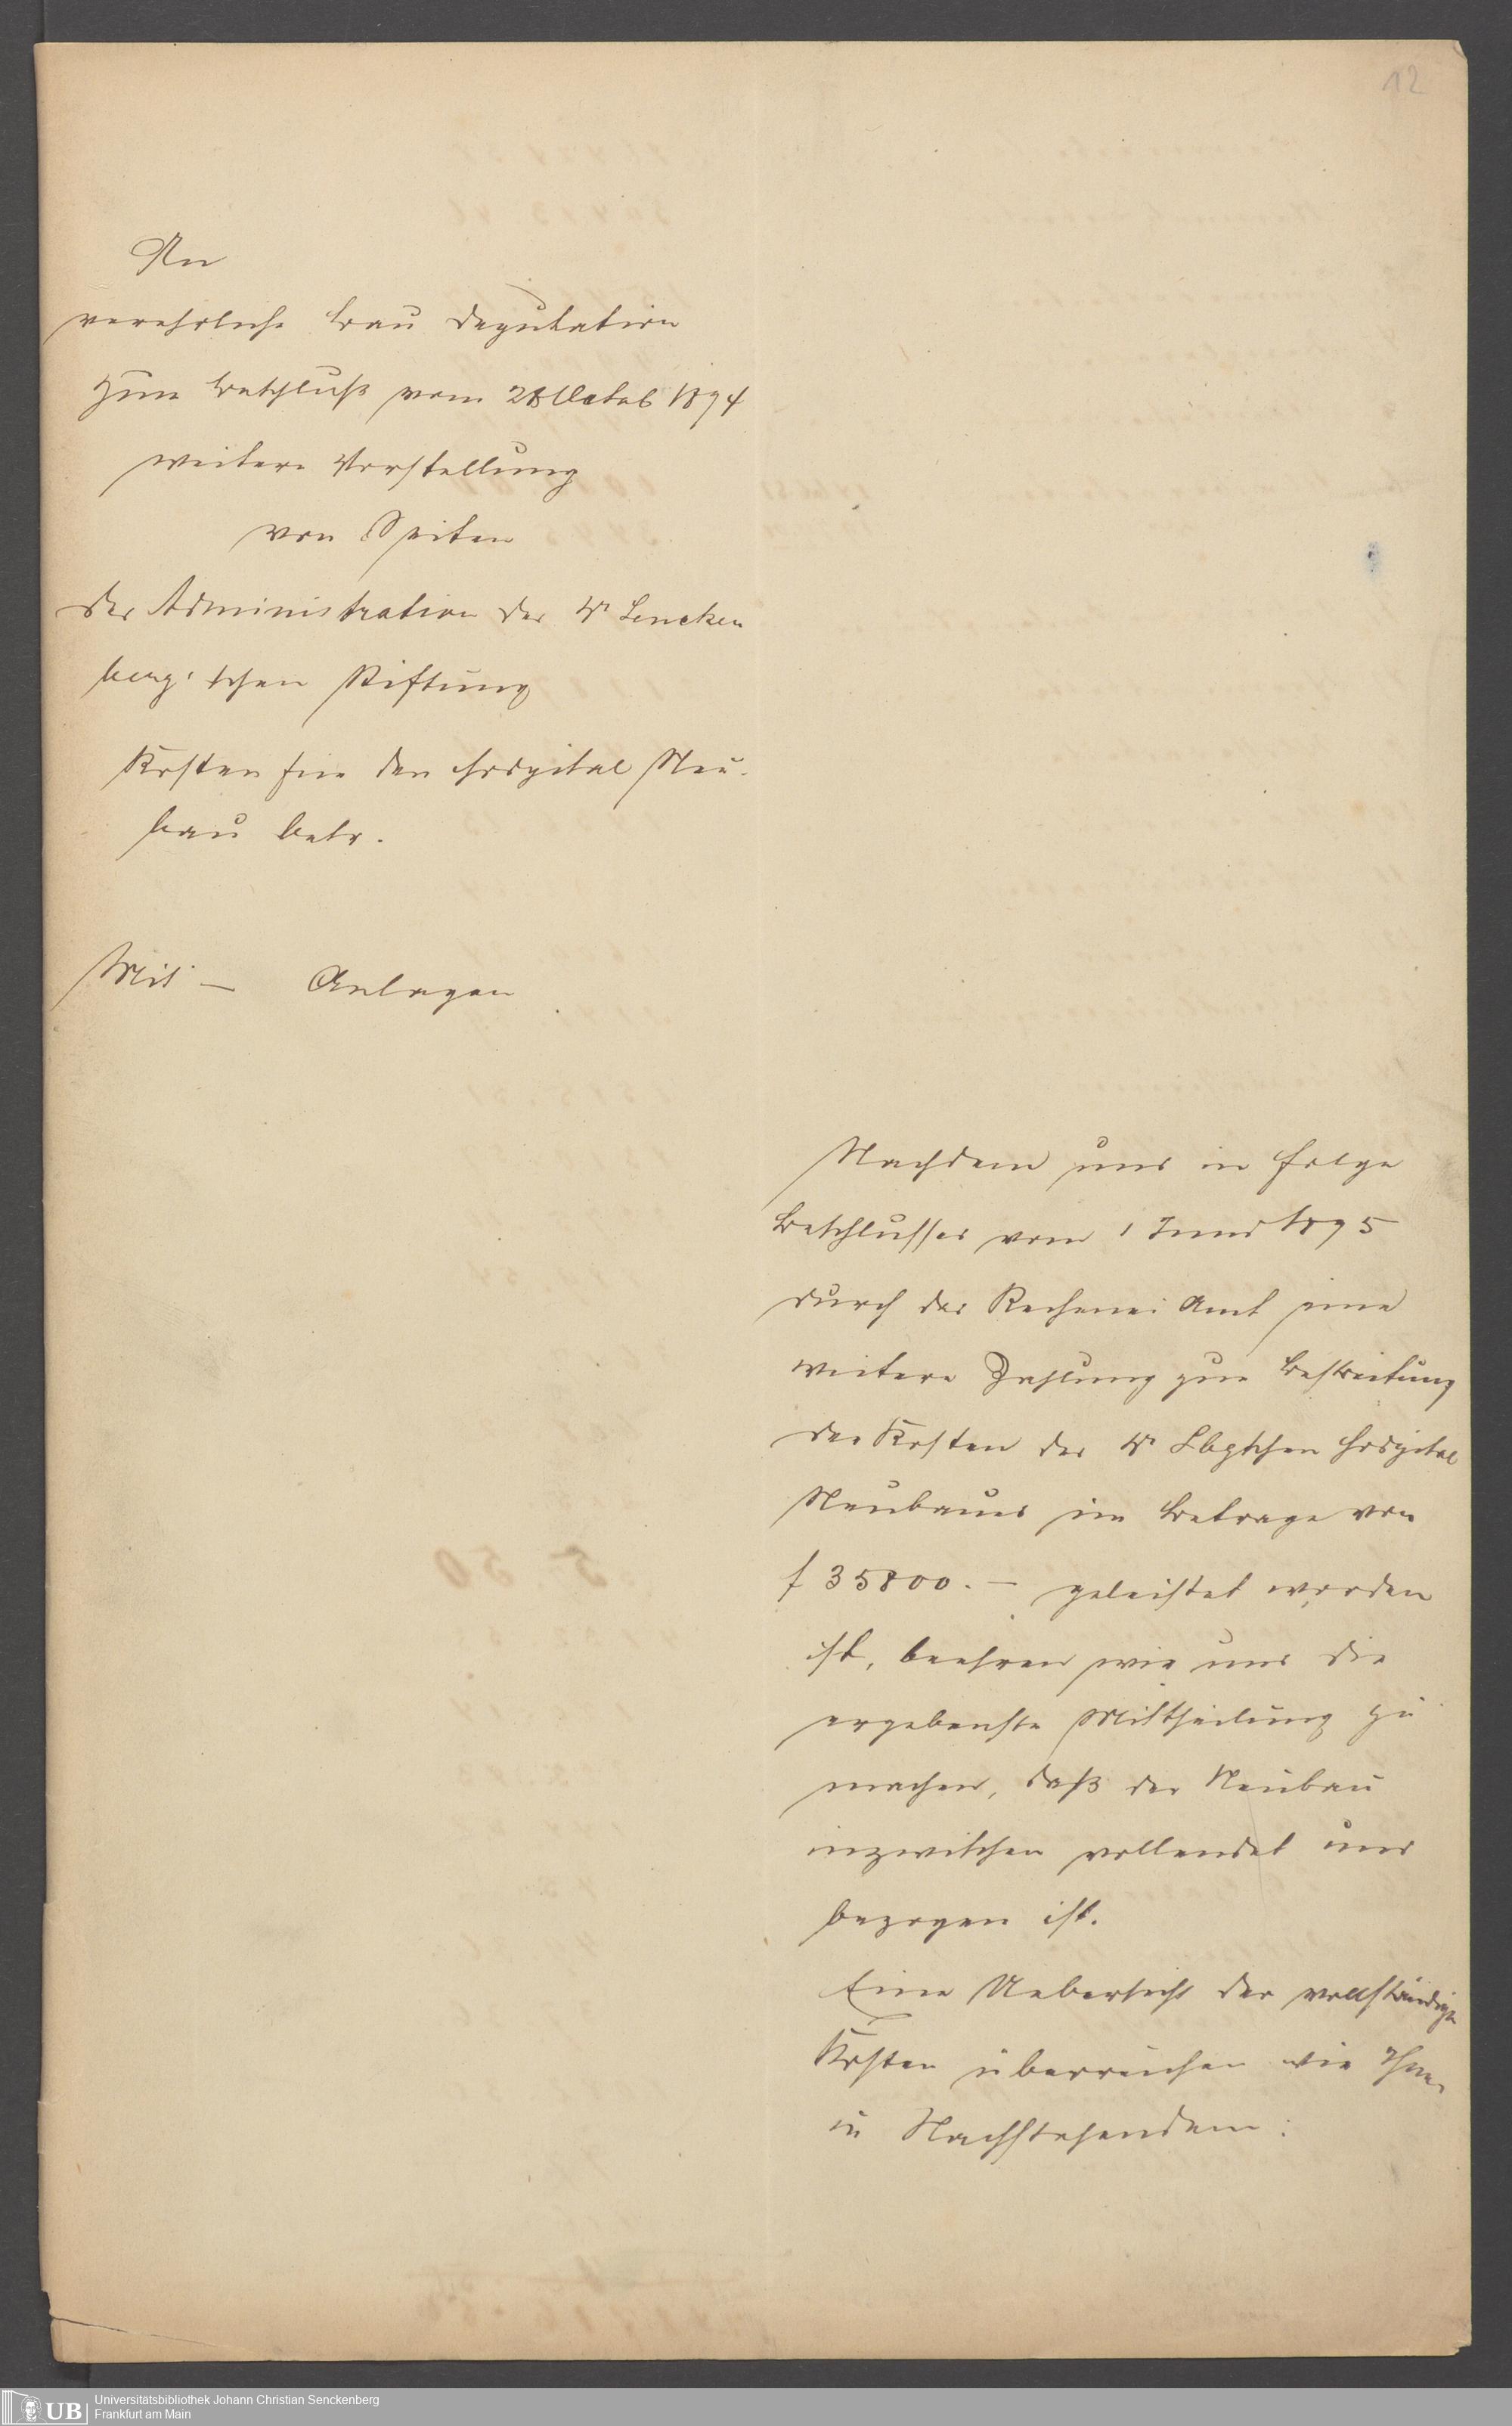 12
An
verehrliche Bau Deputation
zum Beschluß vom 28 Octob 1874
weitere Vorstellung
von Seiten
der Administration der Dr Sencken
berg'schen Stiftung
Kosten für den Hospital Neu-
bau betr.
Mit — Anlagen
Nachdem uns in Folge
Beschlusses vom 1 Juni 1875
durch das Rechenei Amt eine
weitere Zahlung zur Bestreitung
der Kosten des Dr Sbgschen Hospital
Neubaues im Betrage von
f 35800.— geleistet worden
ist, beehren wir uns die
ergebenste Mittheilung zu
machen, daß der Neubau
inzwischen vollendet und
bezogen ist.
Eine Uebersicht der vollständigen
Kosten überreichen wir Ihnen
in Nachstehendem:
UB
Universitätsbibliothek Johann Christian Senckenberg
Frankfurt am Main